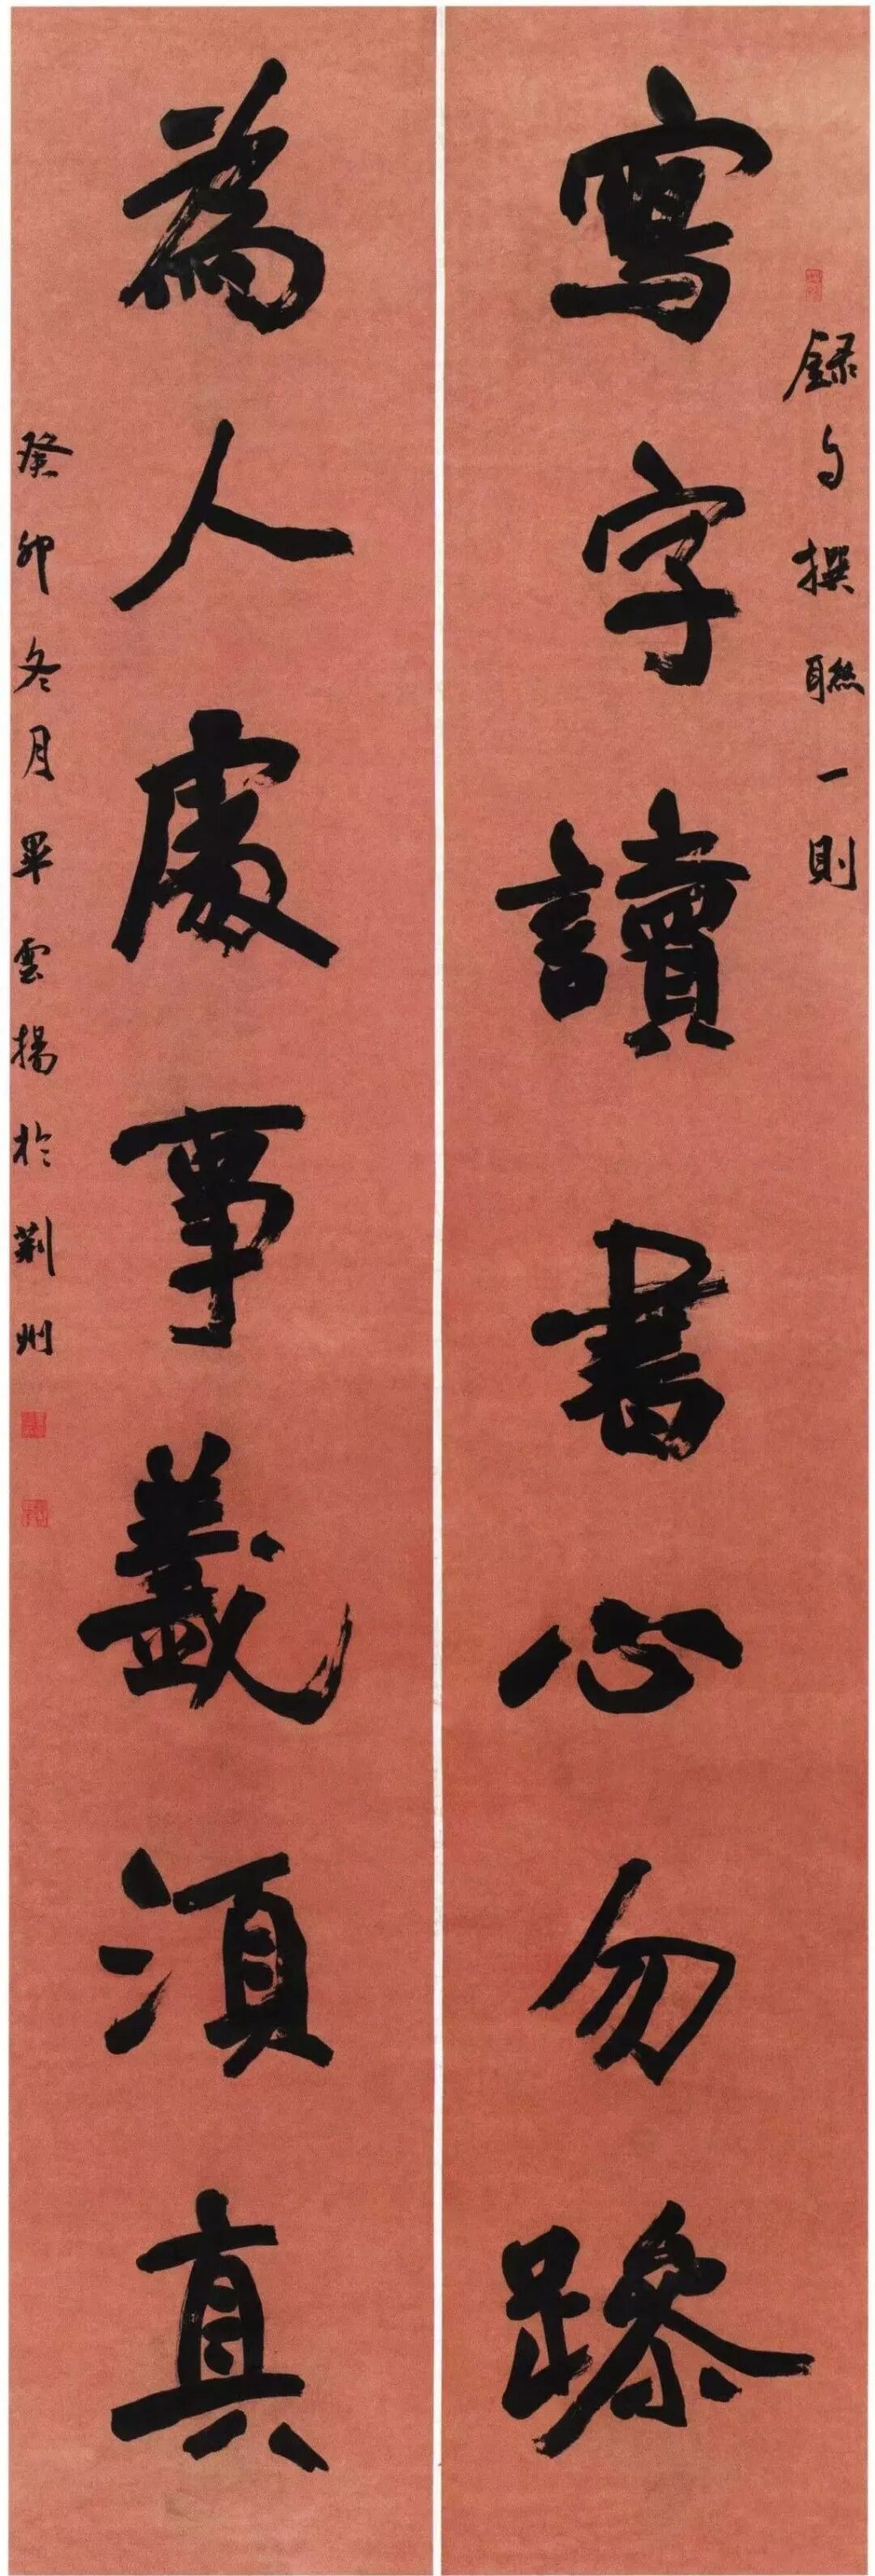 錄自撰聯一則
寫字讀書心勿躁
為人處事義須真
癸卯冬月畢雲揚於荊州